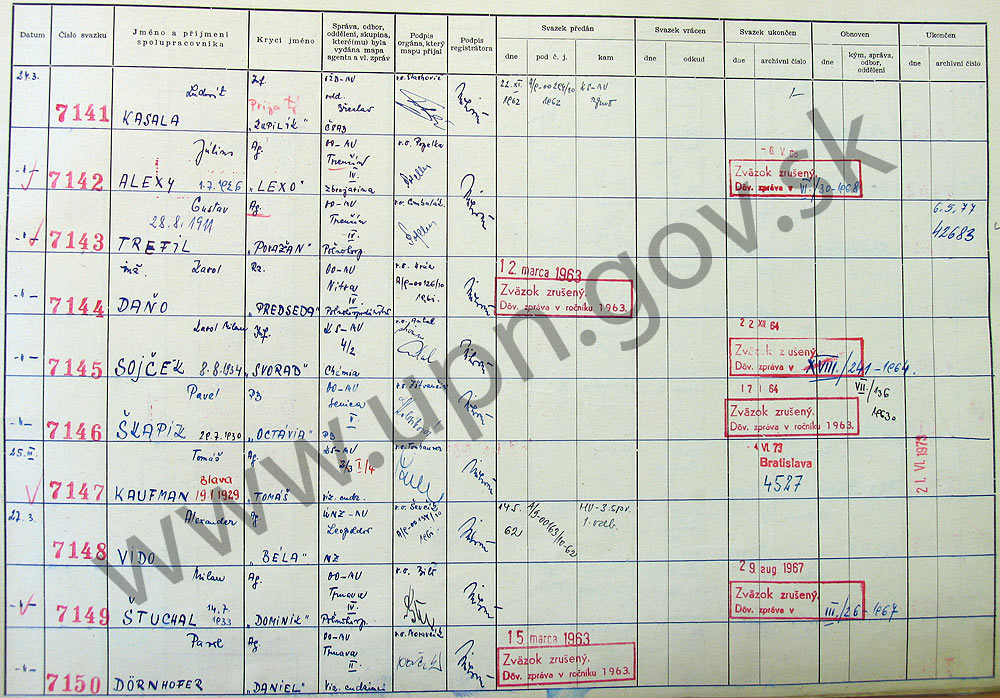 Datum
Číslo svazku
Jméno a příjmení
spolupracovníka
Krycí jméno
Správa, odbor,
oddělení, skupina,
které(mu) byla
vydána mapa
agenta a vl. zpráv
Podpis
orgána, který
mapu přijal
Podpis
registrátora
Svazek předán
dne
pod č. j.
kam
Svazek vrácen
dne
odkud
Svazek ukončen
dne
archivní číslo
Obnoven
dne
kým, správa,
odbor,
oddělení
Ukončen
dne
archivní číslo
24.3.
7141
Ľudovít
KASALA
Inf.
"KAPILÍK"
odd.
Břeclav
ČSAD
22. XI.
1962
1962
KS-AV
7142
Július
ALEXY 1.7.1926
Ag.
"LEXO"
OO-AV
Trenčín
IV.
Zbrojařina
r.o. Popelka
-6. V. 68
Zväzok zrušený.
Dôv. zpráva v VI./30-1968
7143
Gustav
28.8.1911
TREFIL
Ag.
"POVAŽAN"
OO-AV
Trenčín
IV.
6.5.77
42683
7144
inž. Karol
DAŇO
"PREDSEDA"
OO-AV
Nitra
IV.
12. marca 1963
Zväzok zrušený.
Dôv. zpráva v ročníku 1963.
7145
Karol Milan
SOJČEK 8.8.1934
Inf.
"SVORAD"
KS-AV
4/2
Chémia
22 XII 64
Zväzok zrušený.
Dôv. zpráva v XVIII./241-1964.
7146
Pavel
ŠKAPIK 29.7.1930
PB
"OCTÁVIA"
OO-AV
Senica
PB
17 I 64
Zväzok zrušený.
Dôv. zpráva v ročníku 1963.
VII./136
1963.
25. III.
7147
Tomáš
Blava
KAUFMAN 19.1.1929
Ag.
"TOMÁŠ"
KS-AV
2/3 I/4
VI. 73
Bratislava
4527
21. VI. 1973
27.3.
7148
Alexander
VIDO
Ag.
"BÉLA"
ÚNZ-AV
Leopoldov
NZ
r.o. Ševčík
14.5.
62
A/9-00163/10-62
MV-3.spr.
1. odb.
7149
Milan
ŠTUCHAL 14.7.
1933
Ag.
"DOMINIK"
OO-AV
Trnava
IV.
29. aug. 1967
Zväzok zrušený.
Dôv. zpráva v III./26-1967
7150
Pavel
DÖRNHOFER
Ag.
"DANIEL"
OO-AV
Trnava
II.
15. marca 1963
Zväzok zrušený.
Dôv. zpráva v ročníku 1963.
www.upn.gov.sk